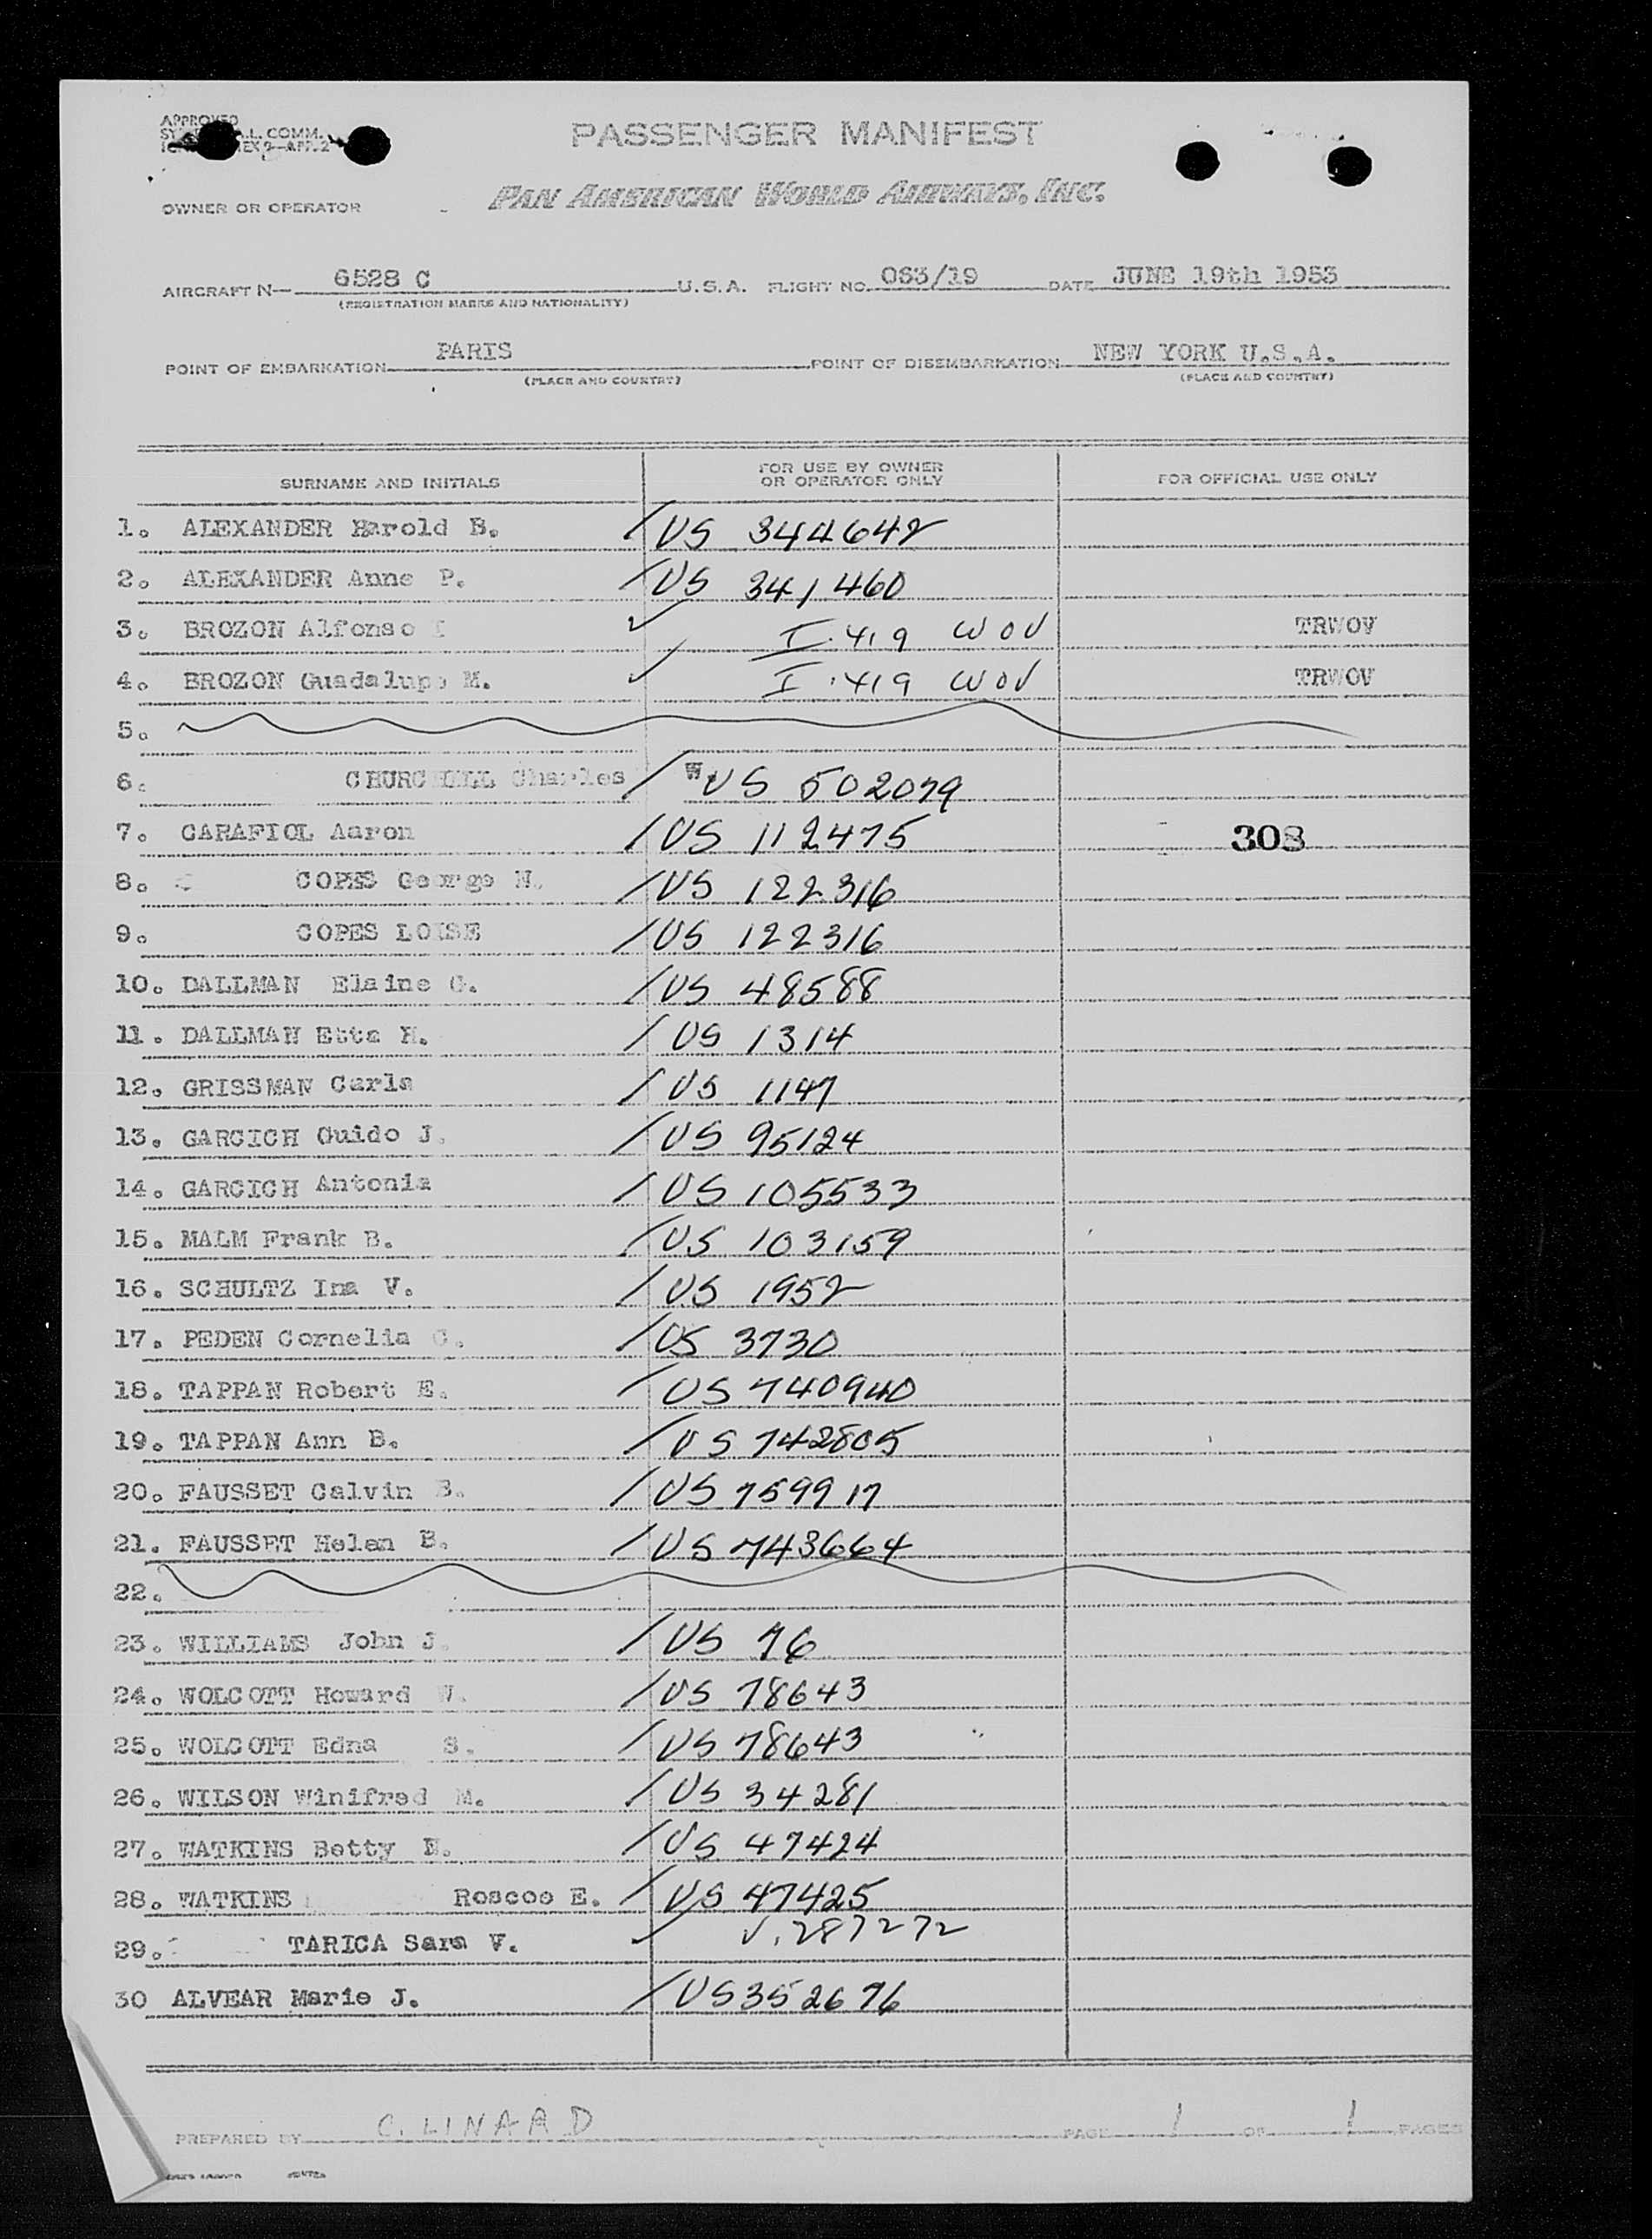 APPROVED
A.L. COMM.
PASSENGER MANIFEST
PAN AMERICAN WORLD AIRWAYS, INC.
OWNER OR OPERATOR
AIRCRAFT N— 6528 C U.S.A. FLIGHT NO. 063/19 DATE JUNE 19th 1953
(REGISTRATION MARKS AND NATIONALITY)
POINT OF EMBARKATION PARIS POINT OF DISEMBARKATION NEW YORK U.S.A.
(PLACE AND COUNTRY) (PLACE AND COUNTRY)
SURNAME AND INITIALS FOR USE BY OWNER OR OPERATOR ONLY FOR OFFICIAL USE ONLY
1. ALEXANDER Harold B. / US 344642
2. ALEXANDER Anne P. / US 341460
3. BROZON Alfonso I ✓ I. 419 WOV TRWOV
4. BROZON Guadalupe M. ✓ I. 419 WOV TRWOV
5.
6. CHURCHILL Charles W. / US 502079
7. CARAFIOL Aaron / US 112475 308
8. COPES George N. / US 122316
9. COPES LOISE / US 122316
10. DALLMAN Elaine G. / US 48588
11. DALLMAN Etta H. / US 1314
12. GRISSMAN Carla / US 1147
13. GARCICH Guido J. / US 95124
14. GARCICH Antonia / US 105533
15. MALM Frank B. / US 103159
16. SCHULTZ Ina V. / US 1952
17. PEDEN Cornelia C. / US 3730
18. TAPPAN Robert E. / US 740940
19. TAPPAN Ann B. / US 742805
20. FAUSSET Calvin B. / US 759917
21. FAUSSET Helen B. / US 743664
22.
23. WILLIAMS John J. / US 76
24. WOLCOTT Howard W. / US 78643
25. WOLCOTT Edna S. / US 78643
26. WILSON Winifred M. / US 34281
27. WATKINS Betty E. / US 47424
28. WATKINS Roscoe E. / US 47425
29. TARICA Sara V. ✓ V. 287272
30 ALVEAR Marie J. / US 352676
PREPARED BY C. LINAAD PAGE 1 OF 1 PAGES